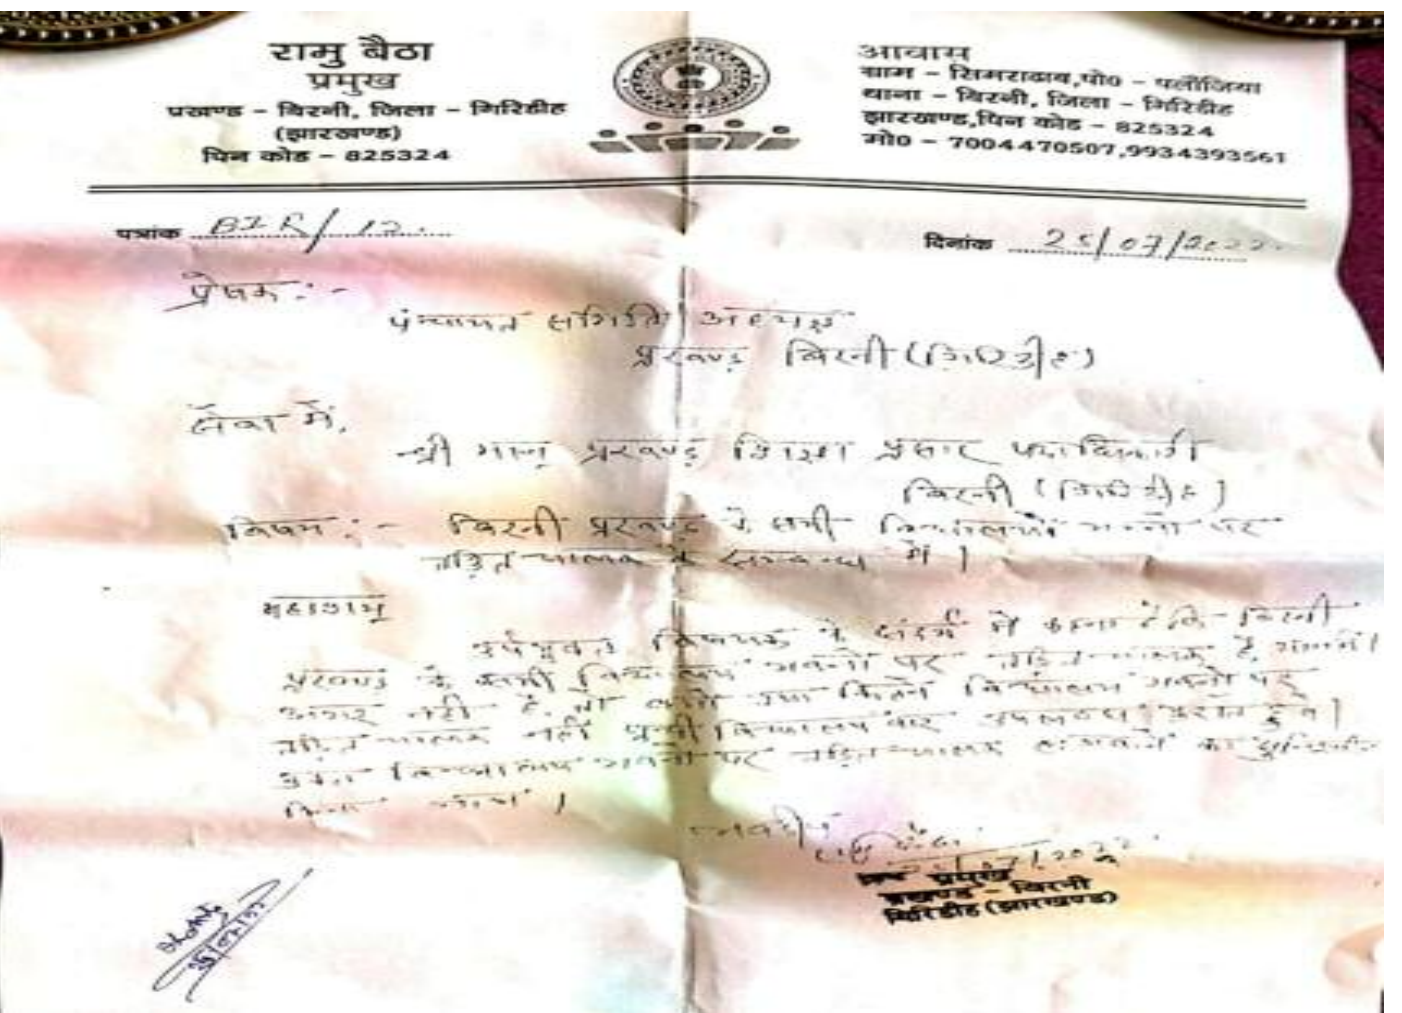 रामु बैठा
प्रमुख
प्रखण्ड - बिरनी, जिला - गिरिडीह
(झारखण्ड)
पिन कोड - 825324
आवास
ग्राम - सिमराढाब,पो0 - पलौंजिया
थाना - बिरनी, जिला - गिरिडीह
झारखण्ड,पिन कोड - 825324
मो0 - 7004470507,9934393561
पत्रांक BIR/12.
दिनांक 25/07/2022
प्रेषक :-
पंचायत समिति अध्यक्ष
प्रखण्ड बिरनी (गिरिडीह)
सेवा में,
श्री मान् प्रखण्ड शिक्षा प्रसार पदाधिकारी
बिरनी (गिरिडीह)
विषय :- बिरनी प्रखण्ड के सभी विद्यालयों भवनों पर
तड़ित चालक के सम्बन्ध में ।
महाशय
उपर्युक्त विषयक के संदर्भ में कहना है कि बिरनी
प्रखण्ड के सभी विद्यालय भवनों पर तड़ित चालक है,
अगर नहीं है, तो तथा कितने विद्यालय भवनों पर
तड़ित चालक नहीं विद्यालय वार उपलब्ध कराते हुए ।
उक्त विद्यालय भवनों पर तड़ित चालक लगवाने का सुनिश्चित
किया जाय ।
प्रमुख
प्रखण्ड - बिरनी
गिरिडीह (झारखण्ड)